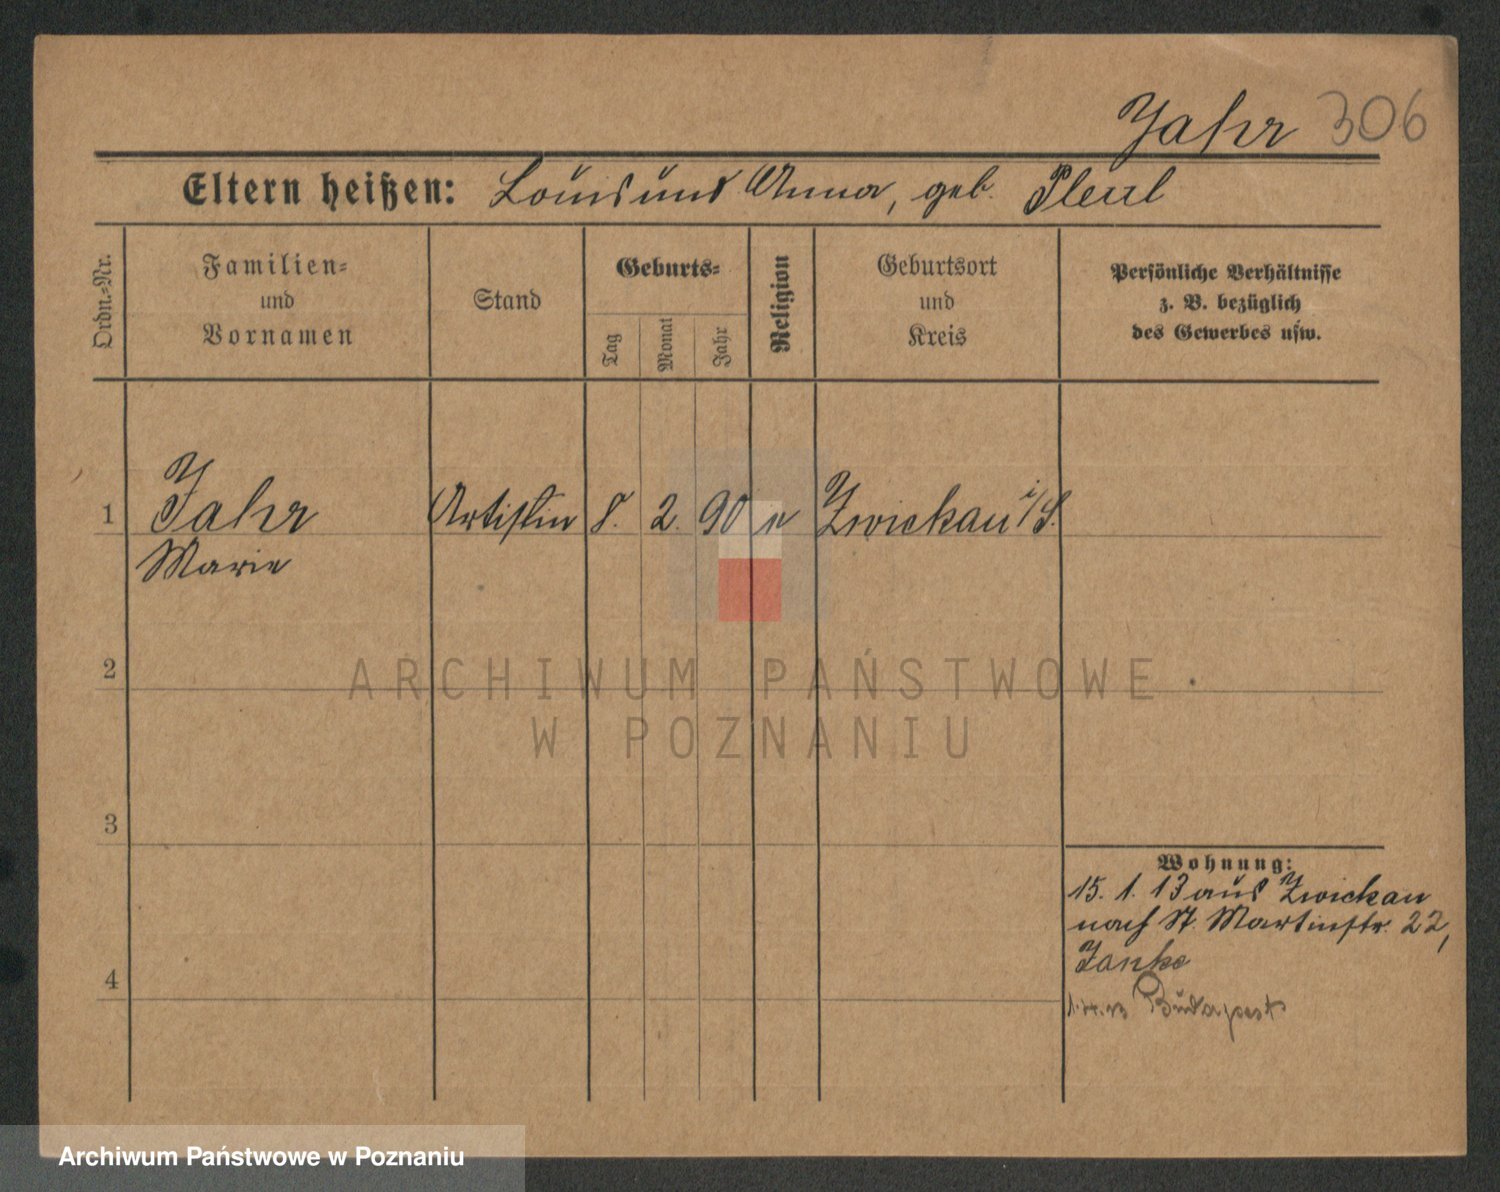 Jahr 306
Eltern heißen: Louis und Anna, geb.
Ordn.-Nr.
Familien-
und
Vornamen
Stand
Geburts-
Tag
Monat
Jahr
Religion
Geburtsort
und
Kreis
Persönliche Verhältnisse
z. B. bezüglich
des Gewerbes usw.
1 Jahr Artistin 8. 2. 90 e Zwickau i/S.
Marie
2
3
4
Wohnung:
15. 1. 13 aus Zwickau
nach St. Martinstr. 22,
Janke
1.4.13 Budapest
ARCHIWUM PAŃSTWOWE
W POZNANIU
Archiwum Państwowe w Poznaniu